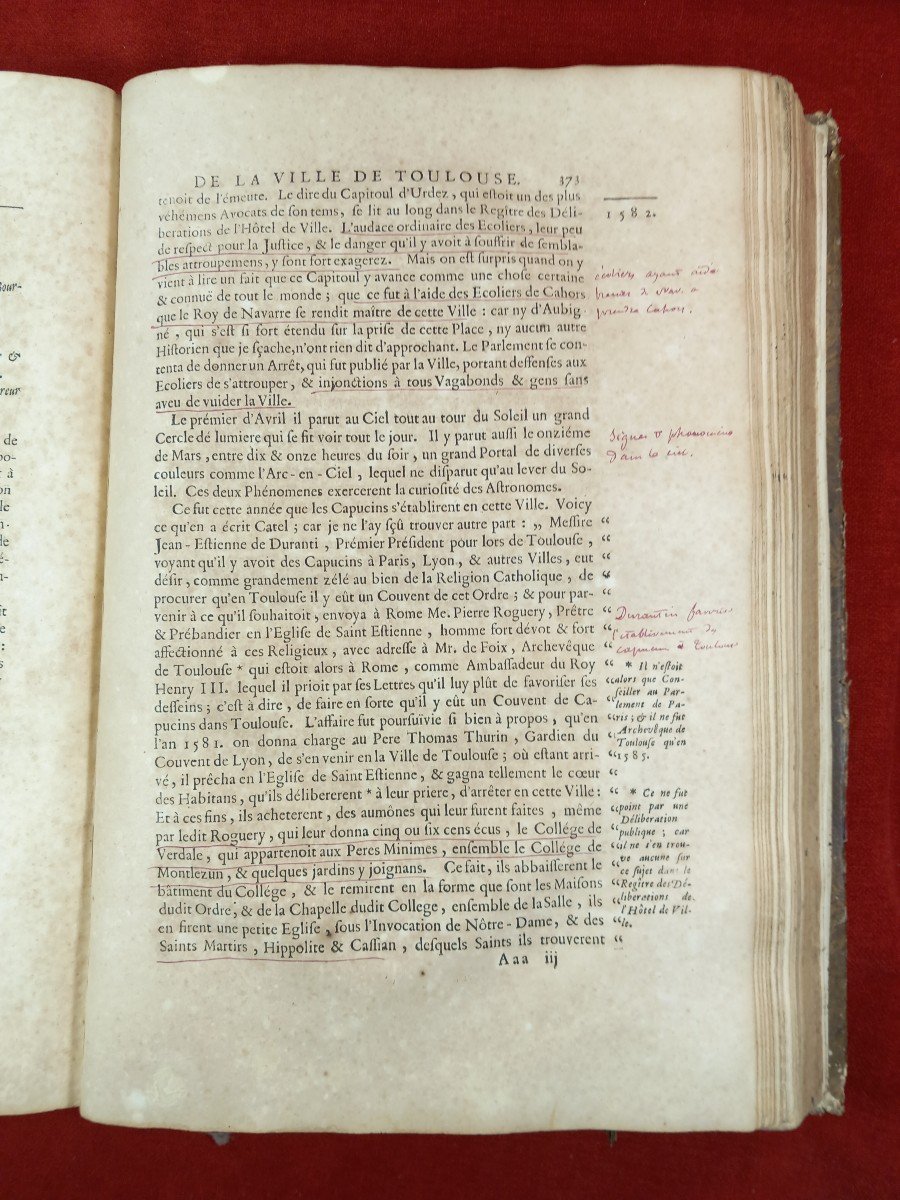 DE LA VILLE DE TOULOUSE. 373
tenoit de l'émeute. Le dire du Capitoul d'Urdez, qui eſtoit un des plus
véhémens Avocats de ſon tems, ſe lit au long dans le Regître des Déli-
berations de l'Hôtel de Ville. L'audace ordinaire des Ecoliers, leur peu
de reſpect pour la Juſtice, & le danger qu'il y avoit à ſouffrir de ſembla-
bles attroupemens, y ſont fort exagerez. Mais on eſt ſurpris quand on y
vient à lire un fait que ce Capitoul y avance comme une choſe certaine
& connuë de tout le monde ; que ce fut à l'aide des Ecoliers de Cahors
que le Roy de Navarre ſe rendit maître de cette Ville : car ny d'Aubig-
né, qui s'eſt ſi fort étendu ſur la priſe de cette Place, ny aucun autre
Hiſtorien que je ſçache, n'ont rien dit d'approchant. Le Parlement ſe con-
tenta de donner un Arrêt, qui fut publié par la Ville, portant deffenſes aux
Ecoliers de s'attrouper, & injonctions à tous Vagabonds & gens ſans
aveu de vuider la Ville.
Le prémier d'Avril il parut au Ciel tout au tour du Soleil un grand
Cercle dé lumiere qui ſe fit voir tout le jour. Il y parut auſſi le onziéme
de Mars, entre dix & onze heures du ſoir, un grand Portal de diverſes
couleurs comme l'Arc-en-Ciel, lequel ne diſparut qu'au lever du So-
leil. Ces deux Phénomenes exercerent la curioſité des Aſtronomes.
Ce fut cette année que les Capucins s'établirent en cette Ville. Voicy
ce qu'en a écrit Catel ; car je ne l'ay ſçû trouver autre part : „ Meſſire “
Jean-Eſtienne de Duranti, Prémier Préſident pour lors de Toulouſe, “
voyant qu'il y avoit des Capucins à Paris, Lyon, & autres Villes, eut “
déſir, comme grandement zélé au bien de la Religion Catholique, de “
procurer qu'en Toulouſe il y eût un Couvent de cet Ordre ; & pour par- “
venir à ce qu'il ſouhaitoit, envoya à Rome Me. Pierre Roguery, Prêtre “
& Prébandier en l'Egliſe de Saint Eſtienne, homme fort dévot & fort “
affectionné à ces Religieux, avec adreſſe à Mr. de Foix, Archevêque “
de Toulouſe * qui eſtoit alors à Rome, comme Ambaſſadeur du Roy “
Henry III. lequel il prioit par ſes Lettres qu'il luy plût de favoriſer ſes “
deſſeins ; c'eſt à dire, de faire en ſorte qu'il y eût un Couvent de Ca- “
pucins dans Toulouſe. L'affaire fut pourſuivie ſi bien à propos, qu'en “
l'an 1581. on donna charge au Pere Thomas Thurin, Gardien du “
Couvent de Lyon, de s'en venir en la Ville de Toulouſe ; où eſtant arri- “
vé, il prêcha en l'Egliſe de Saint Eſtienne, & gagna tellement le cœur “
des Habitans, qu'ils délibererent * à leur priere, d'arrêter en cette Ville: “
Et à ces fins, ils acheterent, des aumônes qui leur furent faites, même “
par ledit Roguery, qui leur donna cinq ou ſix cens écus, le Collége de “
Verdale, qui appartenoit aux Peres Minimes, enſemble le Collége de “
Montlezun, & quelques jardins y joignans. Ce fait, ils abbaiſſerent le “
bâtiment du Collége, & le remirent en la forme que ſont les Maiſons “
dudit Ordre, & de la Chapelle dudit College, enſemble de la Salle, ils “
en firent une petite Egliſe, ſous l'Invocation de Nôtre-Dame, & des “
Saints Martirs, Hippolite & Caſſian, deſquels Saints ils trouverent “
Aaa iij
1582.
écoliers ayant aidé
prendre Cahors.
Signes & phénomènes
dans le ciel.
Duranti favorise
l'établissement des
capucins à Toulouse
* Il n'eſtoit
alors que Con-
ſeiller au Par-
lement de Pa-
ris ; & il ne fut
Archevêque de
Toulouſe qu'en
1585.
* Ce ne fut
point par une
Déliberation
publique ; car
il ne s'en trou-
ve aucune ſur
ce ſujet dans le
Regître des Dé-
liberations de
l'Hôtel de Vil-
le.